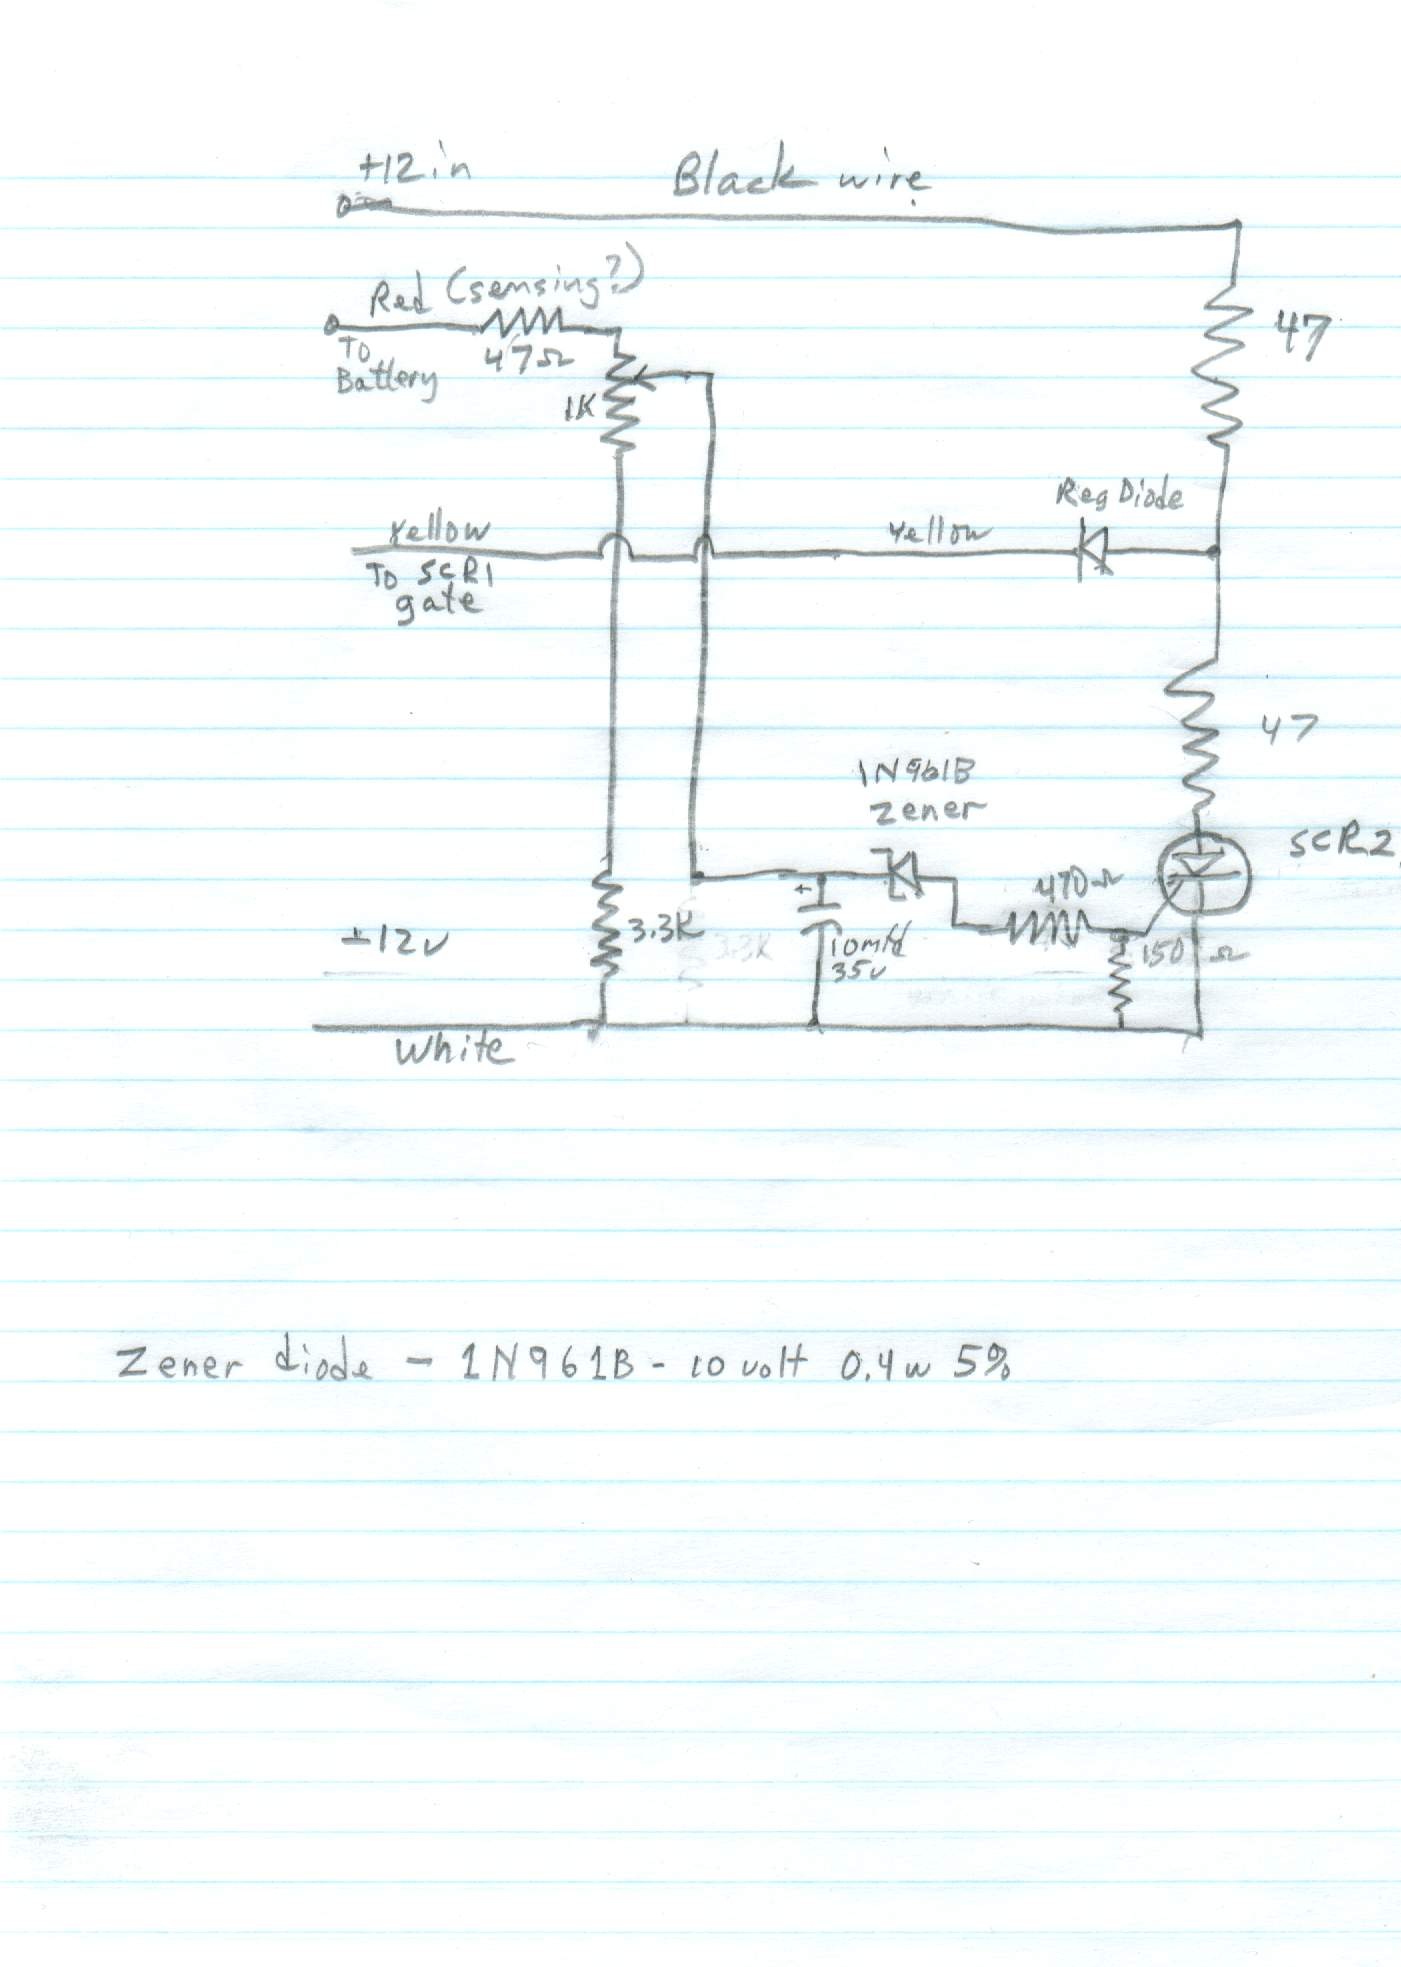 +12 in
Black wire
Red (sensing?)
47Ω
To
Battery
1K
47
Reg Diode
Yellow
Yellow
To SCR1
gate
47
1N961B
Zener
SCR2
470Ω
3.3K
3.3K
+
10mfd
35v
150 Ω
±12v
White
Zener diode - 1N961B - 10 volt 0.4w 5%